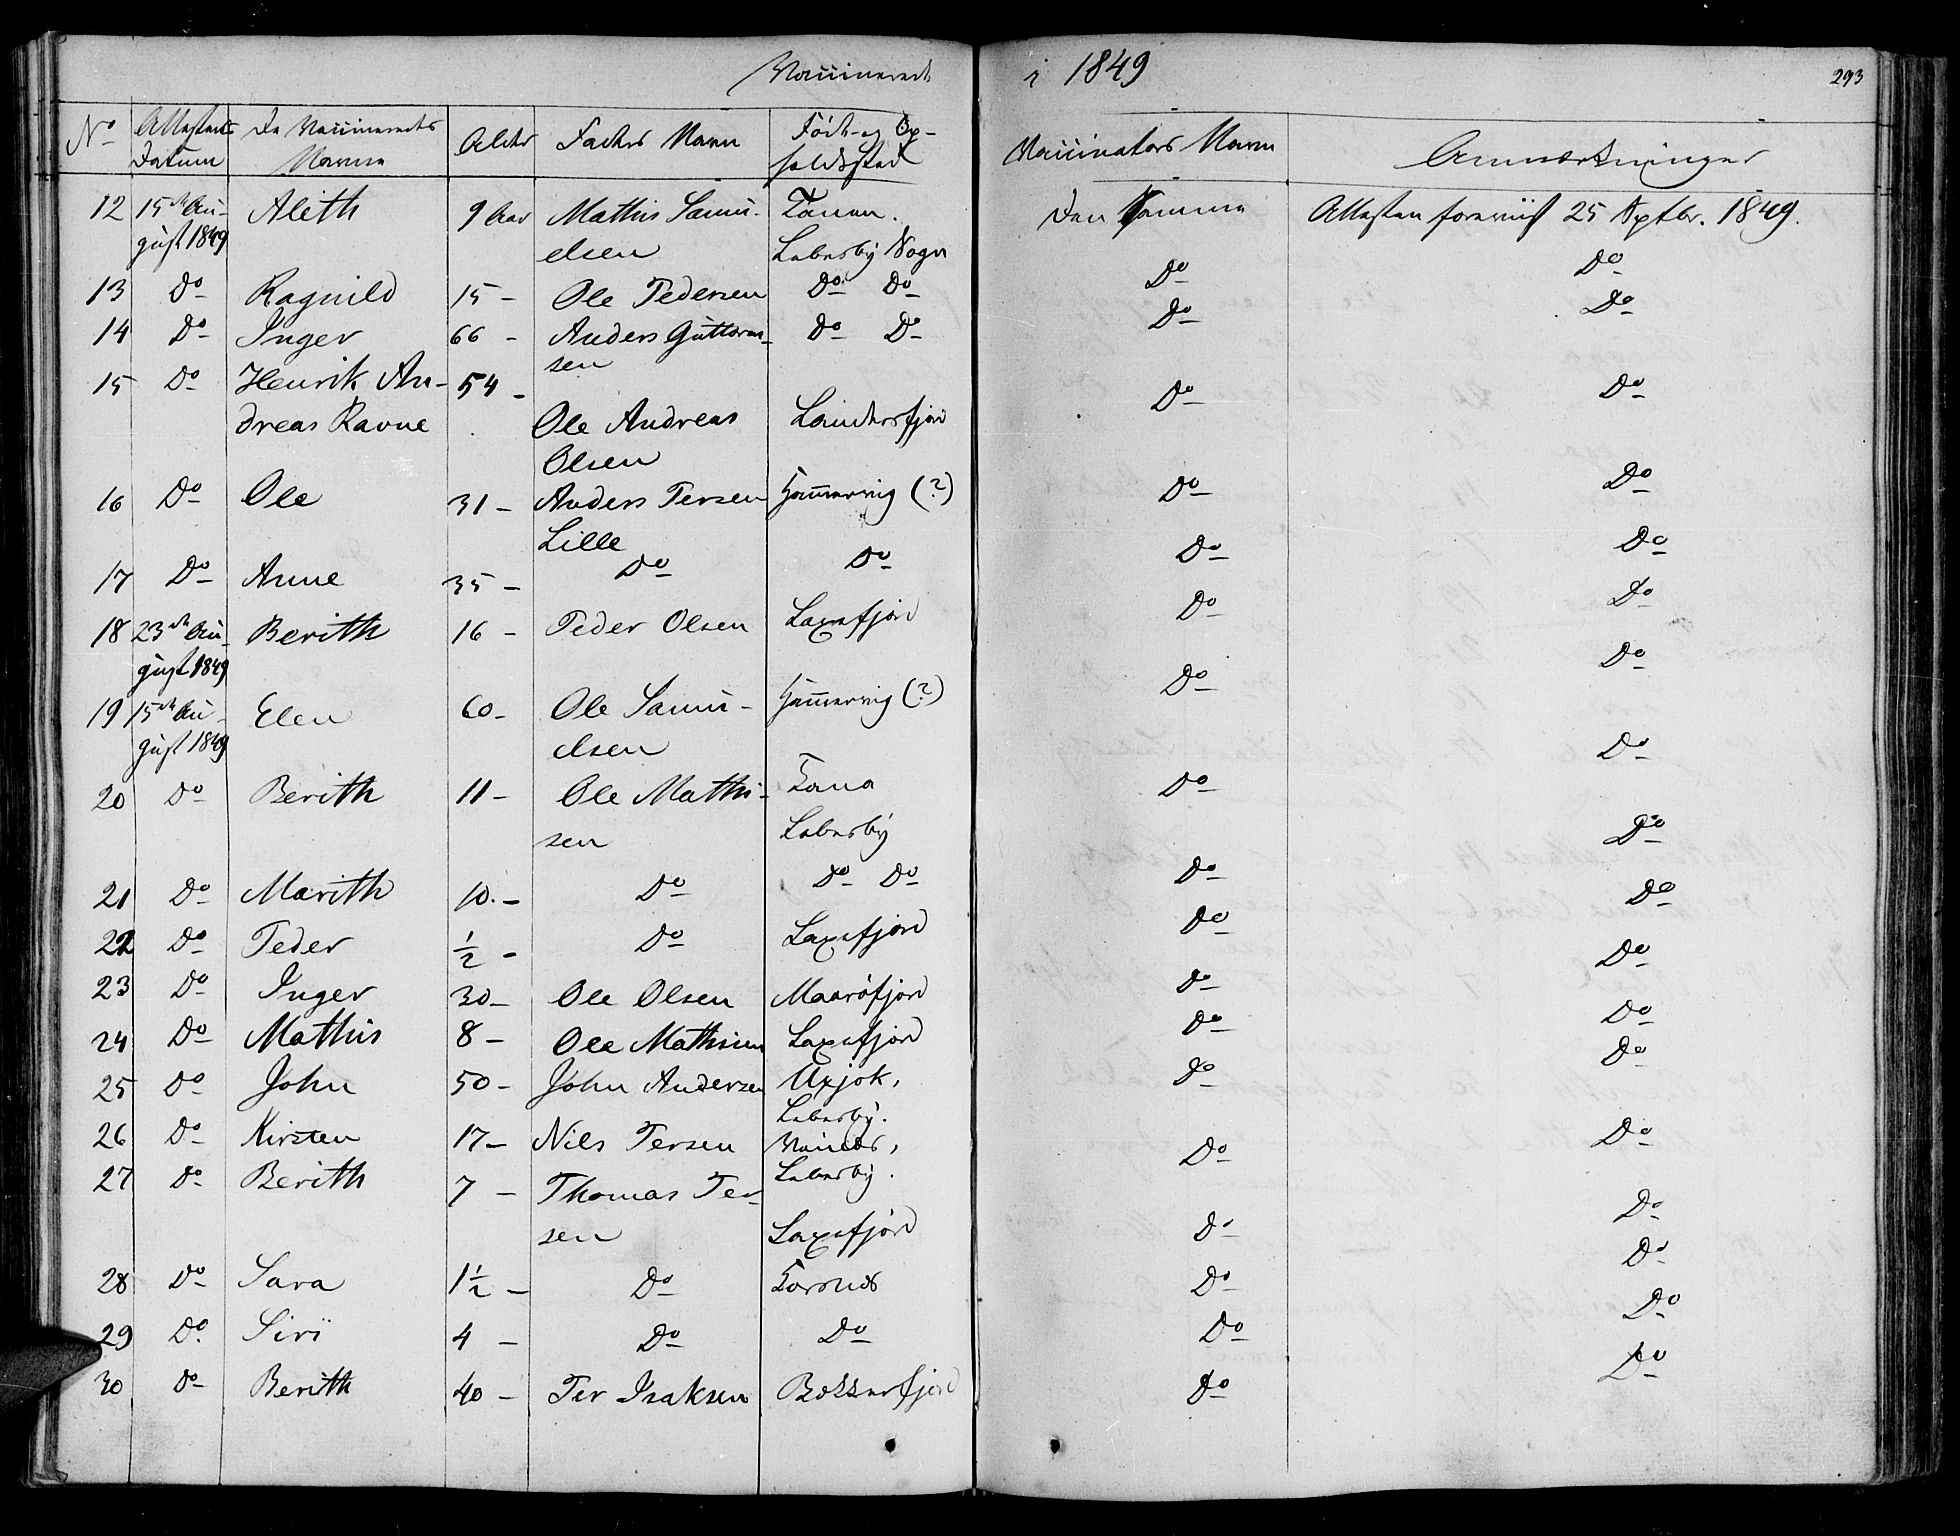 Vaccinerede i 1849
293
No
Attestens Datum
De Vaccineredes Navne
Alder
Faders Navn
Føde- og Opholdssted
Vaccinators Navn
Anmærkninger
12 15de August 1849 Alith 9 Aar Mathis Samuelsen Tanen. Lebesby Sogn Den Samme Attesten foreviist 25 Septbr. 1849.
13 Do Ragnild 15 - Ole Pedersen Do Do Do Do
14 Do Inger 66 - Anders Guttormsen Do Do Do Do
15 Do Henrik Andreas Ravne 54 - Ole Andreas Olsen Landersfjord Do Do
16 Do Ole 31 - Anders Persen Lille Hammervig (?) Do Do
17 Do Anne 35 - Do Do Do Do
18 23de August 1849 Berith 16 - Peder Olsen Laxefjord Do Do
19 15de August 1849 Elen 60 - Ole Samuelsen Hammervig (?) Do Do
20 Do Berith 11 - Ole Mathisen Tana Lebesby Do Do
21 Do Marith 10. - Do Do Do Do Do
22 Do Peder ½ - Do Laxefjord Do Do
23 Do Inger 30 - Ole Olsen Maarøfjord Do Do
24 Do Mathis 8 - Ole Mathisen Laxefjord Do Do
25 Do John 50 - John Andersen Uxjok, Lebesby. Do Do
26 Do Kirsten 17 - Nils Persen Lebesby. Do Do
27 Do Berith 7 - Thomas Persen Laxefjord Do Do
28 Do Sara 1½ - Do Torsnes Do Do
29 Do. Siri 4 - Do Do Do Do
30 Do Berith 40 - Per Isaksen Bekkerfjord Do Do